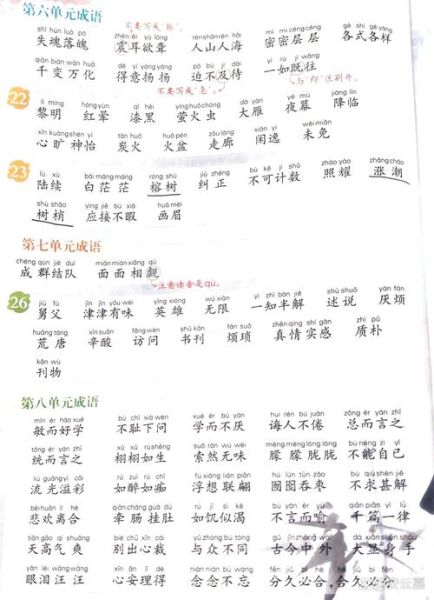 第六单元成语
不要写成"振"。
shī hún luò pò zhèn ěr yù lóng rén shān rén hǎi mì mì céng céng gè shì gè yàng
失魂落魄 震耳欲聋 人山人海 密密层层 各式各样
qiān biàn wàn huà dé yì yáng yáng pò bù jí dài yì rú jì wǎng
千变万化 得意扬扬 迫不及待 一如既往
不要写成"急"。 与"即"区别开。
22
lí míng hóng yùn qī hēi yíng huǒ chóng dà yàn yè mù jiàng lín
黎明 红晕 漆黑 萤火虫 大雁 夜幕 降临
xīn kuàng shén yí tàn huǒ huǒ pén zǒu láng xián yì wèi miǎn
心旷神怡 炭火 火盆 走廊 闲逸 未免
23
lù xù bái máng máng róng shù jiū zhèng bù kě jì shǔ zhào yào zhǎng cháo
陆续 白茫茫 榕树 纠正 不可计数 照耀 涨潮
shù shāo yìng jiē bù xiá huà méi
树梢 应接不暇 画眉
第七单元成语
chéng qún jié duì miàn miàn xiāng qù
成群结队 面面相觑
注意读音是qù。
26
jiù fù jīn jīn yǒu wèi yīng xióng wú xiàn yì zhī bàn jiě shù shuō yàn fán
舅父 津津有味 英雄 无限 一知半解 述说 厌烦
huāng táng xīn suān fǎng wèn shū kān fán suǒ zhēn qíng shí gǎn zhì pǔ
荒唐 辛酸 访问 书刊 烦琐 真情实感 质朴
kān wù
刊物
第八单元成语
mǐn ér hào xué bù chǐ xià wèn xué ér bú yàn huì rén bú juàn zǒng ér yán zhī
敏而好学 不耻下问 学而不厌 诲人不倦 总而言之
tǒng ér yán zhī xǔ xǔ rú shēng suǒ rán wú wèi méng méng lóng lóng bù néng zì yǐ
统而言之 栩栩如生 索然无味 朦朦胧胧 不能自已
liú guāng yì cǎi rú zuì rú chī fú xiǎng lián piān hú lún tūn zǎo bù qiú shèn jiě
流光溢彩 如醉如痴 浮想联翩 囫囵吞枣 不求甚解
bēi huān lí hé qiān cháng guà dù rú jī sì kě bù yán ér yù qiān piān yí lǜ
悲欢离合 牵肠挂肚 如饥似渴 不言而喻 千篇一律
tiān gāo qì shuǎng bié chū xīn cái yǔ zhòng bù tóng gǔ jīn zhōng wài dà xiǎn shēn shǒu
天高气爽 别出心裁 与众不同 古今中外 大显身手
眼泪汪汪 心安理得 念念不忘 分久必合，合久必分